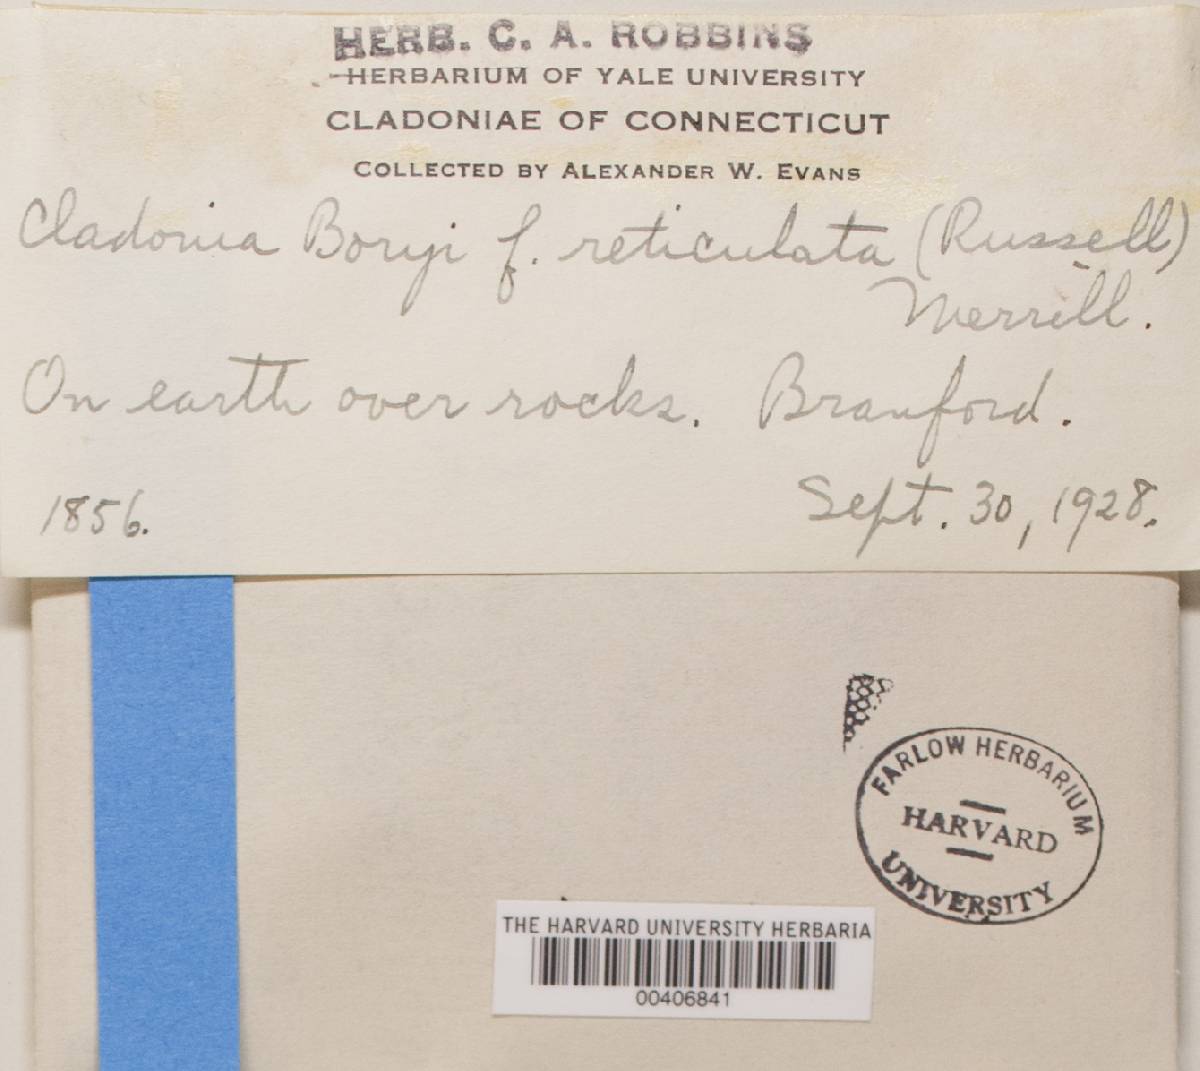 HERB. C. A. ROBBINS
HERBARIUM OF YALE UNIVERSITY
CLADONIAE OF CONNECTICUT
COLLECTED BY ALEXANDER W. EVANS
Cladonia Boryi f. reticulata (Russell)
Merrill.
On earth over rocks. Branford.
1856. Sept. 30, 1928.
FARLOW HERBARIUM
HARVARD
UNIVERSITY
THE HARVARD UNIVERSITY HERBARIA
00406841